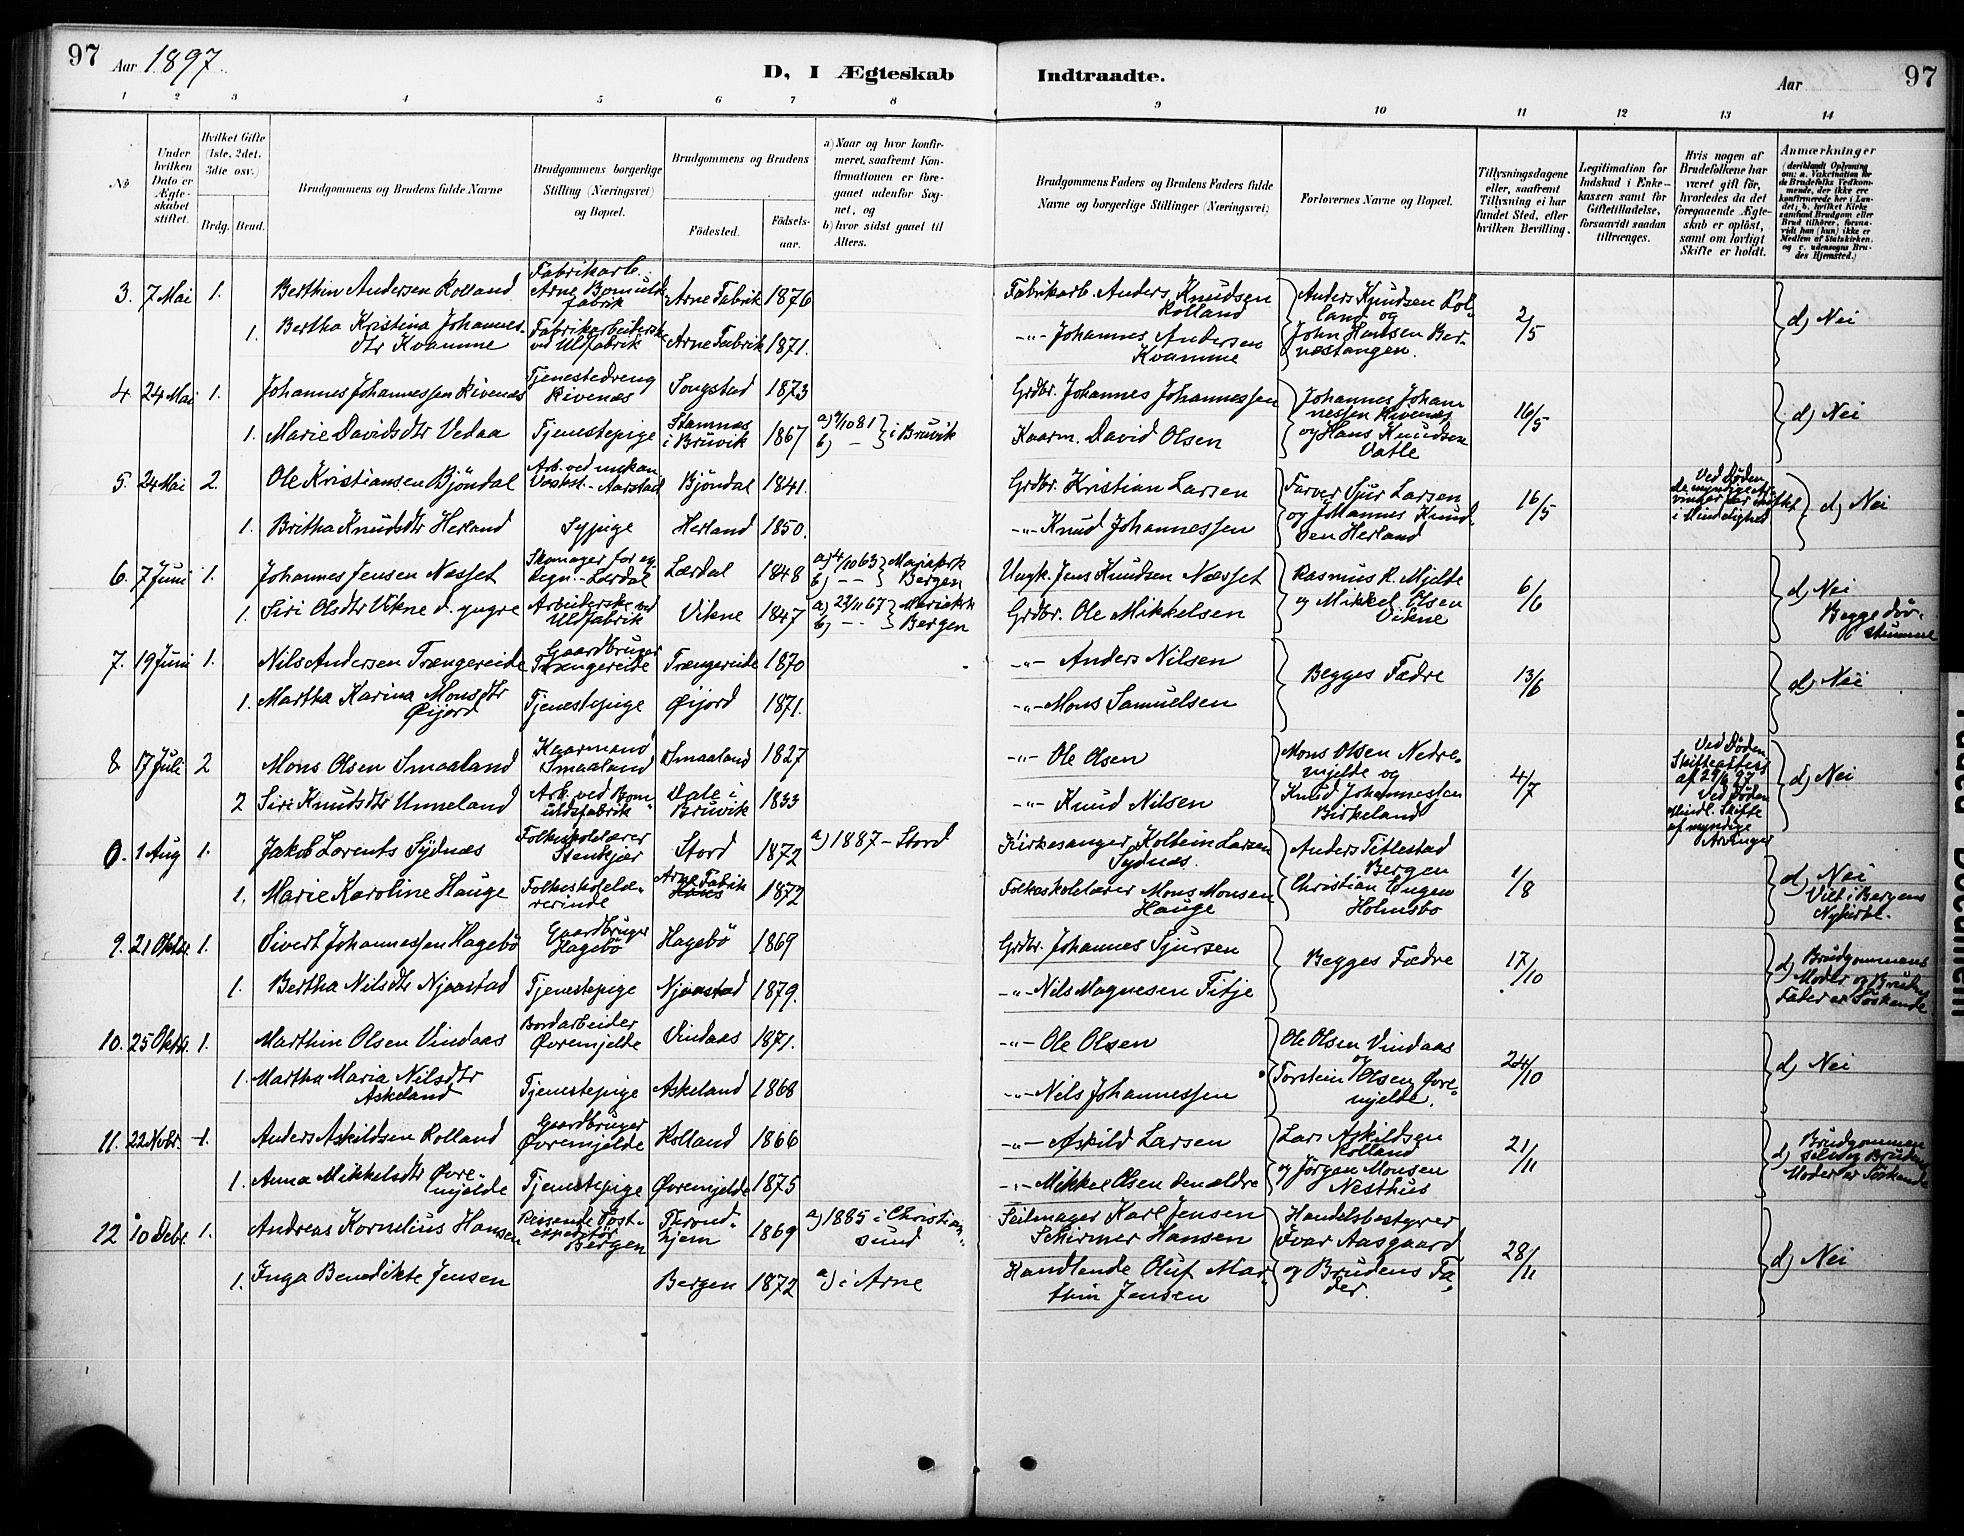 97 Aar 1897. D, I Ægteskab Indtraadte. Aar 97
1 2 3 4 5 6 7 8 9 10 11 12 13 14
No
Under hvilken Dato er Ægteskabet stiftet.
Hvilket Gifte (1ste, 2det, 3die osv.)
Brdg. Brud.
Brudgommens og Brudens fulde Navne
Brudgommens borgerlige Stilling (Næringsvei) og Bopæl.
Brudgommens og Brudens
Fødested. Fødsels-aar.
a) Naar og hvor konfirmeret, saafremt Konfirmationen er foregaaet udenfor Sognet, og
b) hvor sidst gaaet til Alters.
Brudgommens Faders og Brudens Faders fulde Navne og borgerlige Stillinger (Næringsvei)
Forlovernes Navne og Bopæl.
Tillysningsdagene eller, saafremt Tillysning ei har fundet Sted, efter hvilken Bevilling.
Legitimation for Indskud i Enkekassen samt for Giftetilladelse, forsaavidt saadan tiltrænges.
Hvis nogen af Brudefolkene har været gift før, hvorledes da det foregaaende Ægteskab er opløst, samt om lovligt Skifte er holdt.
Anmærkninger
(deriblandt Oplysning om: a. Vakcination for de Brudefolks Vedkommende, der ikke ere konfirmerede her i Landet, b. hvilket Kirkesamfund Brudgom eller Brud tilhører, forsaavidt han (hun) ikke er Medlem af Statskirken, og c. udensogns Brudes Hjemsted.)
3. 7 Mai 1. Berthin Andersen Rolland Fabrikarb. Arne Bomulds fabrik Arne Fabrik 1876 Fabrikarb. Anders Knudsen Rolland Anders Knudsen Rolland og John Hansen Bernæstangen. 2/5 d) Nei
1. Bertha Kristina Johannesdtr Kvamme Fabrikarbeidersk ved Uldfabrik Arne Fabrik 1871. -"- Johannes Andersen Kvamme
4 24 Mai 1. Johannes Johannessen Rivenæs Tjenestedreng Rivenæs Songstad 1873 Grdbr. Johannes Johannessen Johannes Johannessen Rivenæs og Hans Knudsen Vatle 16/5 d) Nei
1. Marie Davidsdtr Vedaa Tjenestepige Stamnæs i Bruvik 1867 a) 9/10 81 b) — } i Bruvik Kaarm. David Olsen
5. 24 Mai 2. Ole Kristiansen Bjöndal Arb. ved mekan Værkst.-Aarstad Bjöndal 1841. Grdbr. Kristian Larsen Farver Sjur Larsen og Johannes Knudsen Herland 16/5 Ved Døden i Mindelighed d) Nei
1. Britha Knudsdtr Herland Sypige Herland 1850. -"- Knud Johannessen
6. 7 Juni 1. Johannes Jensen Næsset Skomager for eg Regn.-Lærdal Lærdal 1848 a) 4/10 63 b) -- } Mariakrk Bergen Ungk. Jens Knudsen Næsset Rasmus R. Mjelde og Mikkel Olsen Vikne 6/6 d) Nei Begge døvstumme
1. Siri Olsdtr Vikne d. yngre Arbeiderske ved Uldfabrik Vikne 1847 a) 23/11 67 b) -- } Mariakrk Bergen Grdbr. Ole Mikkelsen
7. 19 Juni 1. Nils Andersen Trængereide Gaardbruger Trængereide Trængereide 1870 -"- Anders Nilsen Begges Fædre 13/6 d) Nei
1. Martha Karina Monsdtr Øijord Tjenestepige Øijord 1871. -"- Mons Samuelsen
8. 17 Juli 2 Mons Olsen Smaaland Kaarmand Smaaland Smaaland 1827 -"- Ole Olsen Mons Olsen Nedremjelde og Knud Johannessen Birkeland 4/7 Ved Døden Skifteattest af d) Nei
2 Siri Knudsdtr Unneland Arb. ved Bomuldsfabrik Dale i Bruvik 1833 -"- Knud Nilsen Ved Døden Mindl. Skifte af myndige Arvinger
0. 1 Aug 1. Jakob Lorents Sydnæs Folkeskolelærer Stenkjær Stord 1872 a) 1887 - Stord Kirkesanger Kolbein Larsen Sydnæs. Anders Titlestad Bergen Christian Eugen Holmsbo 1/8 d) Nei Viet i Bergens Nykirke.
1. Marie Karoline Hauge Folkeskolelærerinde Arne Fabrik 1872 Folkeskolelærer Mons Monsen Hauge
9. 21 Oktbr. 1. Sivert Johannessen Hagebö Gaardbruger Hagebö Hagebö 1869 Grdbr. Johannes Sjursen Begges Fædre 17/10 d) Brudgommens Moder og Brudens Fader er Söskende.
1. Bertha Nilsdtr Njaastad Tjenestepige Njaastad 1879. -"- Nils Magnesen Titje
10. 25 Oktbr. 1. Marthin Olsen Vindaas Bordarbeider Øvremjelde Vindaas 1871. -"- Ole Olsen Ole Olsen Vindaas og Torstein Olsen Øvremjelde. 24/10 d) Nei
1. Martha Maria Nilsdtr Askeland Tjenestepige Askeland 1868 -"- Nils Johannessen
11. 22 Novbr. 1. Anders Askildsen Rolland Gaardbruger Øvremjelde Rolland 1866 -"- Askild Larsen Lars Askildsen Rolland og Jørgen Monsen Nesthus 21/11 d) Brudgommen selv og Brudens Moder er Söskende
1. Anna Mikkelsdtr Øvremjelde Tjenestepige Øvremjelde 1875 -"- Mikkel Olsen den ældre
12 10 Debr. 1. Andreas Kornelius Hansen Reisende Postexpeditör Bergen Thrond-hjem 1869 a) 1885 i Christian-sund Seilmager Karl Jensen Schirmer Hansen Handelsbestyrer Ivar Aasgaard og Brudens Fader. 28/11 d) Nei
1. Inga Benedikte Jensen Bergen 1872 a) i Arne Handlende Oluf Marthin Jensen